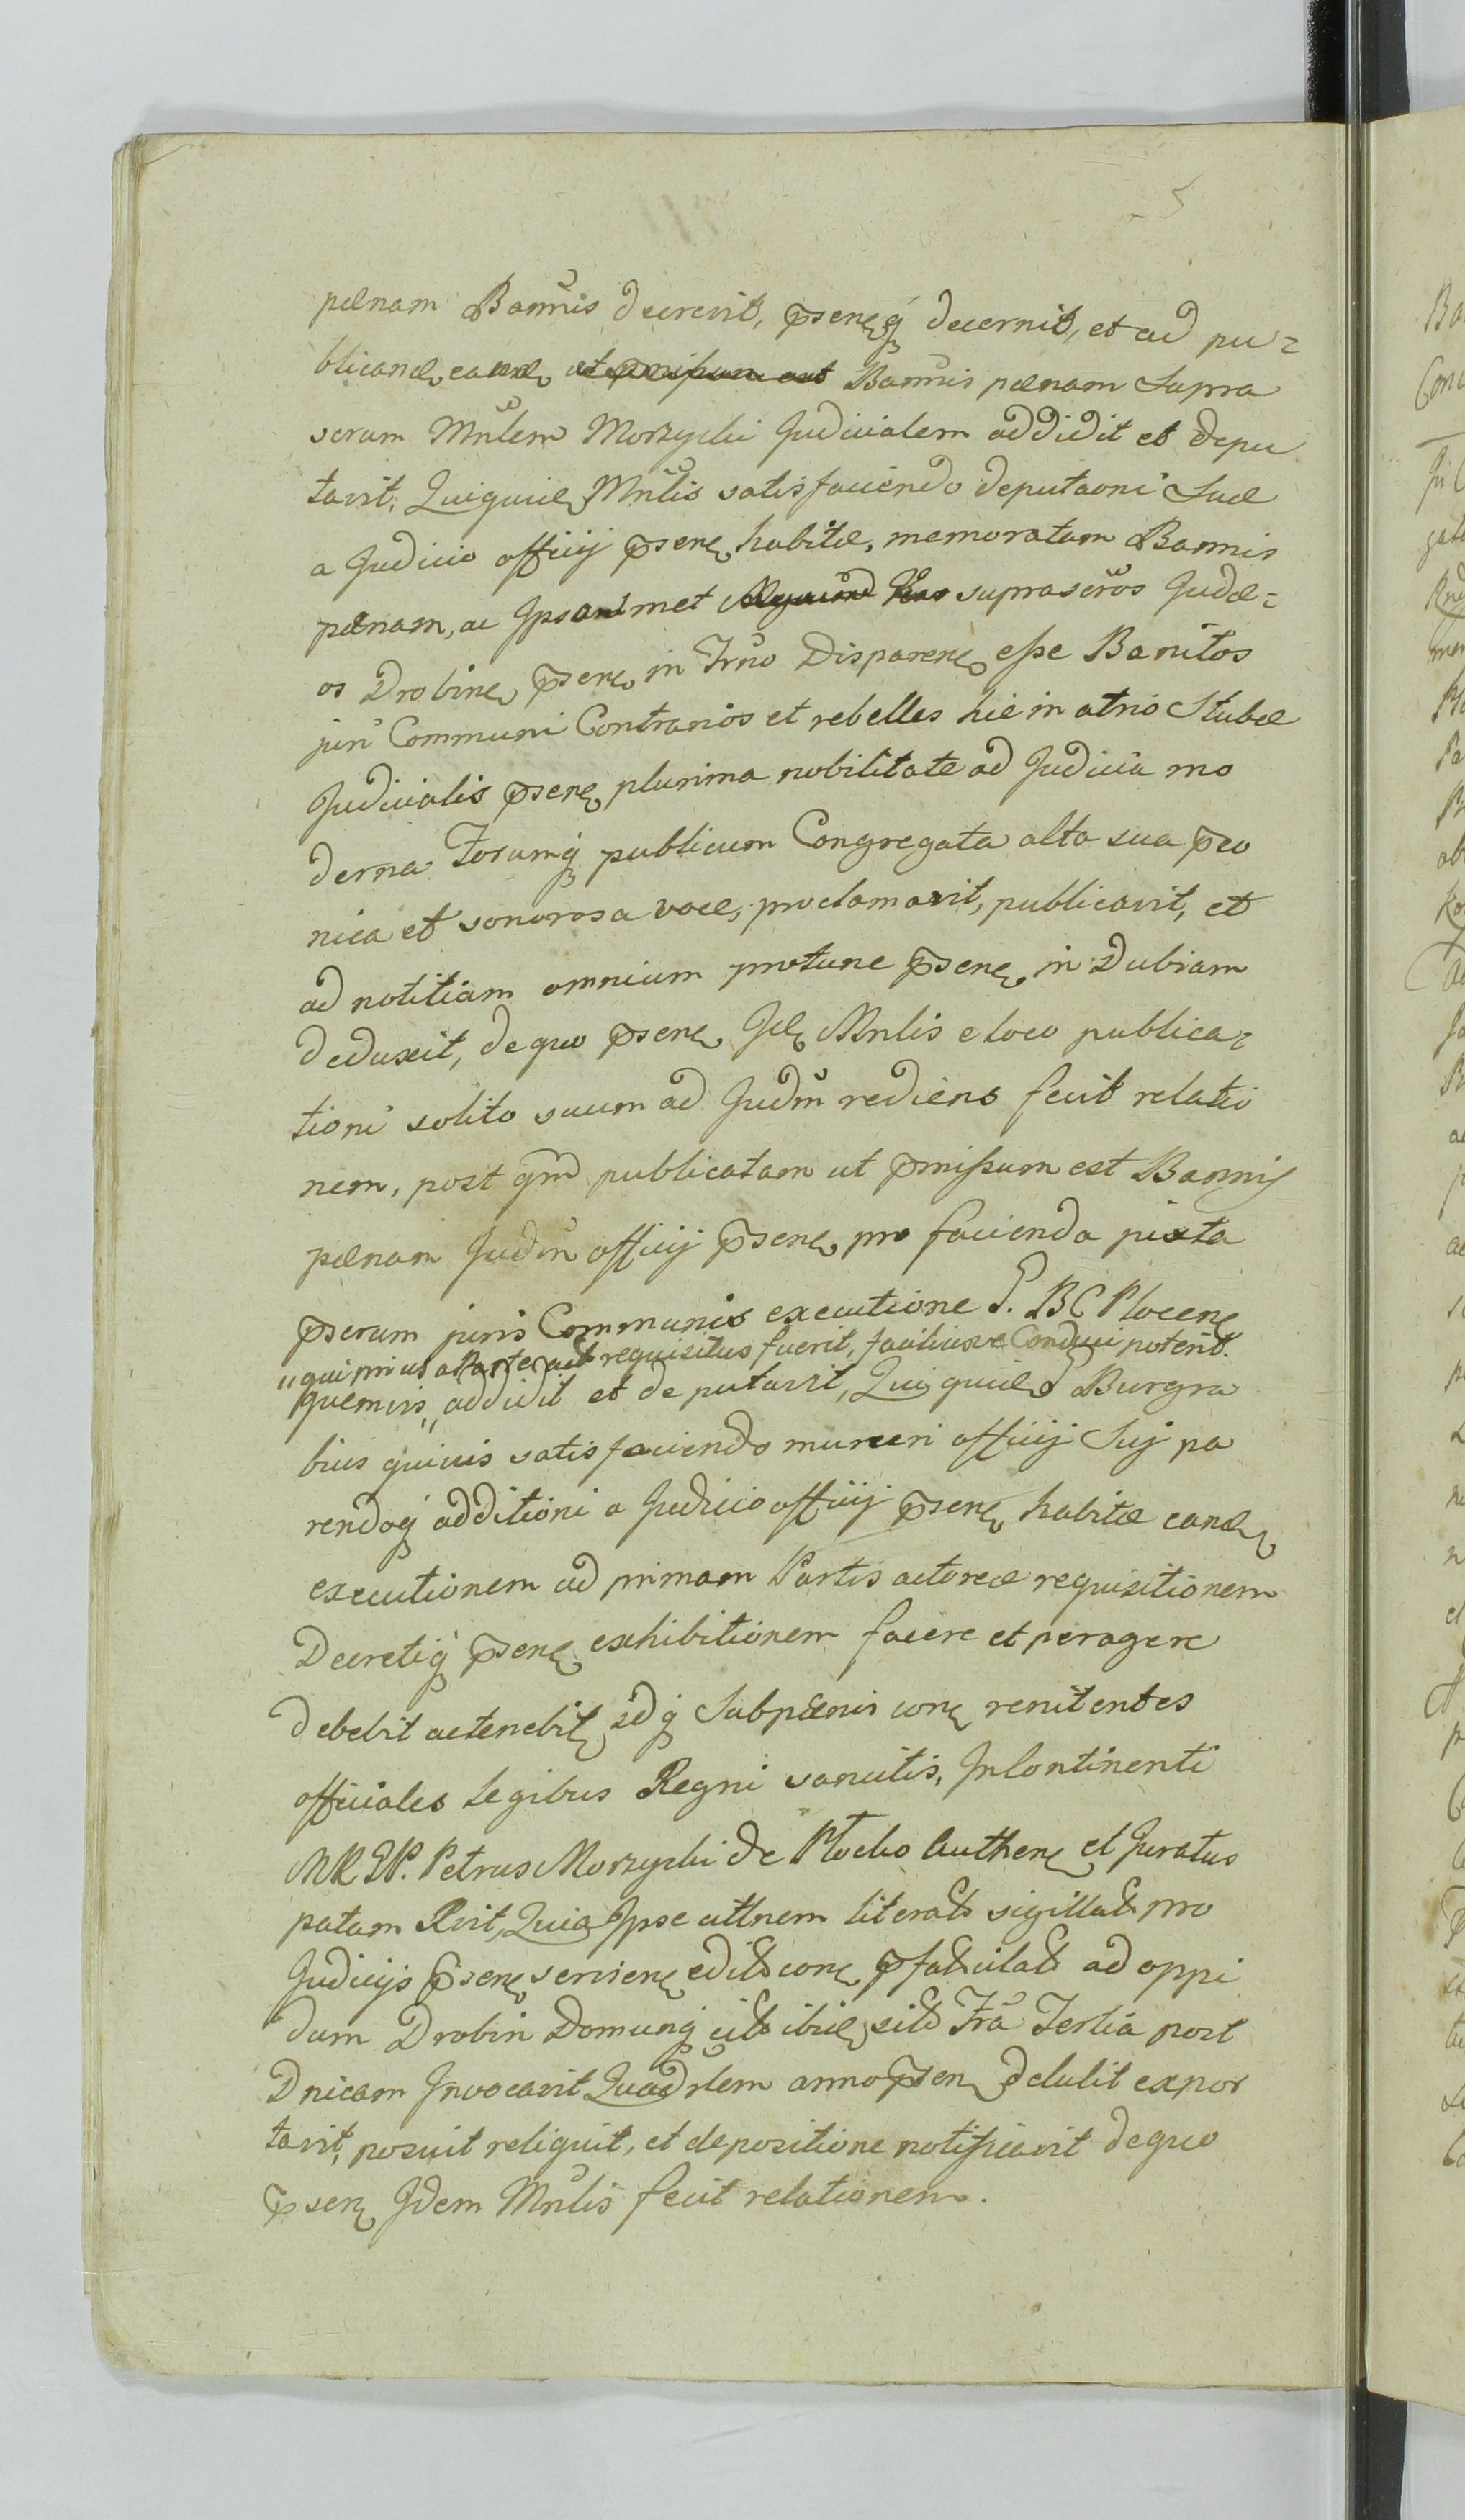 5
pœnam Bannis decrevit, p̄senq́ decernit, et ad pu=
blicand, eand, Bannis pœnam Supra
scrum Mnlem Morzycki Judicialem addidit et depu
tavit, Quiquid, Mnlis satisfaciendo deputaoni Suæ
a Judicio officij p̄sen, habitæ, memoratam Bannis
pœnam, ac Ipsosmet suprascros Judæ=
os Drobinen, p̄sen, in Trno Disparen, esse Banitos
juri Communi Contrarios et rebelles hic in atrio Stubæ
Judicialis p̄sen, plurima nobilitate ad Judicia mo
derna Forumq́ publicum Congregata alta sua p̄co
nica et sonorosa voce, proclamavit, publicavit, et
ad notitiam omnium protunc p̄sen, in Dubiam
deduxit, de quo p̄sen, Id, Mnlis e loco publica=
tioni solito suum ad Judm rediens fecit relatio
nem, post qm publicatam ut p̄missum est Bannis
pœnam Judm officij p̄sen, pro facienda juxta
p̄scrum juris Communis executione G. BC Plocen,
"qui prius a Parte act requisitus fuerit, faciliusve Conduci poterit.
quemvis" addidit et deputavit, Quiquid G Burgra
bius quivis satisfaciendo muneri officij Sui pa
rendoq́ additioni a Judicio officij p̄sen, habitæ eand,
executionem ad primam Partis actoreæ requisitionem
Decretiq́ p̄sen, exhibitionem facere et peragere
debebit ac tenebit, idq́ Subpœnis con, renitentes
officiales Legibus Regni sancitis, In Continenti
MRGP. Petrus Morzycki de Plocko Authen, et Juratus
palam Rvit, Quia Ipse litcrat sigillat pro
Judicijs p̄sen, servien, edit con, p̄fat citat ad oppi
dum Drobin Domumq́ cit ibid, sit Fra Tertia post
Dnicam Invocavit Quadrlem anno p̄sen, detulit expor
tavit, posuit reliquit, et de positione notificavit de quo
p̄sen, Idem Mnlis fecit relationem.